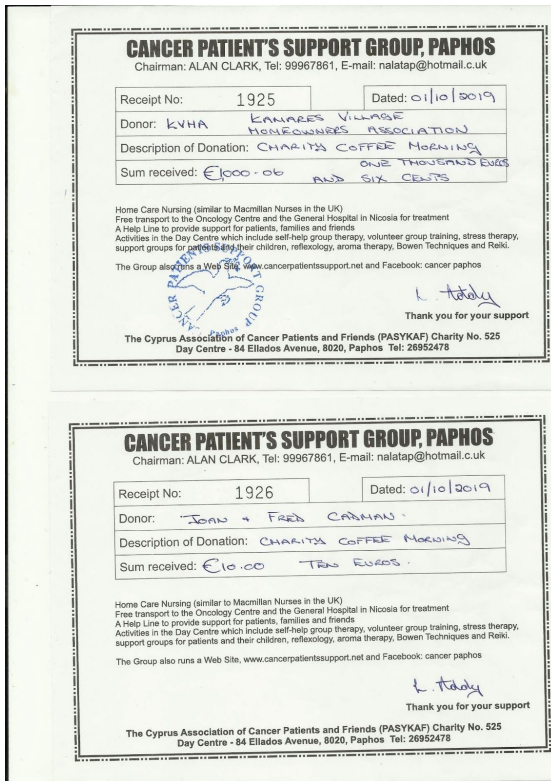 CANCER PATIENT'S SUPPORT GROUP, PAPHOS
Chairman: ALAN CLARK, Tel: 99967861, E-mail: nalatap@hotmail.c.uk
Receipt No: 1925 Dated: 01/10/2019
Donor: KVHA KAMARES VILLAGE
HOMEOWNERS ASSOCIATION
Description of Donation: CHARITY COFFEE MORNING
ONE THOUSAND EUROS
Sum received: €1,000-06 AND SIX CENTS
Home Care Nursing (similar to Macmillan Nurses in the UK)
Free transport to the Oncology Centre and the General Hospital in Nicosia for treatment
A Help Line to provide support for patients, families and friends
Activities in the Day Centre which include self-help group therapy, volunteer group training, stress therapy,
support groups for patients and their children, reflexology, aroma therapy, Bowen Techniques and Reiki.
The Group also runs a Web Site, www.cancerpatientssupport.net and Facebook: cancer paphos
CANCER PATIENTS SUPPORT GROUP
Paphos
Thank you for your support
The Cyprus Association of Cancer Patients and Friends (PASYKAF) Charity No. 525
Day Centre - 84 Ellados Avenue, 8020, Paphos Tel: 26952478
CANCER PATIENT'S SUPPORT GROUP, PAPHOS
Chairman: ALAN CLARK, Tel: 99967861, E-mail: nalatap@hotmail.c.uk
Receipt No: 1926 Dated: 01/10/2019
Donor: JOAN + FRED CADMAN.
Description of Donation: CHARITY COFFEE MORNING
Sum received: €10.00 TEN EUROS.
Home Care Nursing (similar to Macmillan Nurses in the UK)
Free transport to the Oncology Centre and the General Hospital in Nicosia for treatment
A Help Line to provide support for patients, families and friends
Activities in the Day Centre which include self-help group therapy, volunteer group training, stress therapy,
support groups for patients and their children, reflexology, aroma therapy, Bowen Techniques and Reiki.
The Group also runs a Web Site, www.cancerpatientssupport.net and Facebook: cancer paphos
Thank you for your support
The Cyprus Association of Cancer Patients and Friends (PASYKAF) Charity No. 525
Day Centre - 84 Ellados Avenue, 8020, Paphos Tel: 26952478